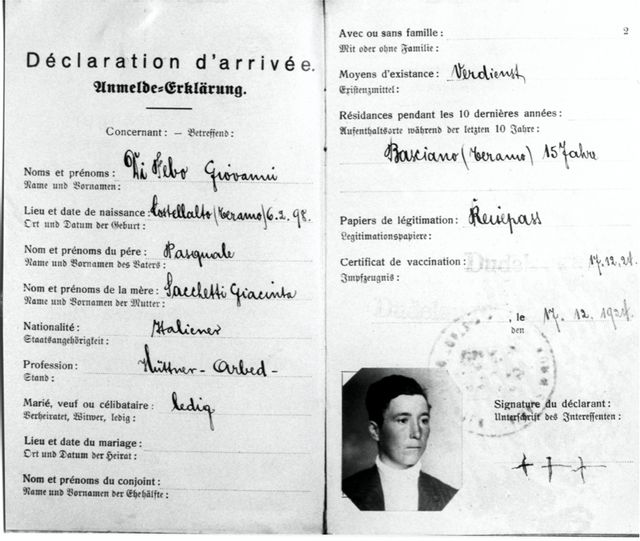 Déclaration d'arrivée.
Anmelde=Erklärung.
Concernant: — Betreffend:
Noms et prénoms: Di Febo Giovanni
Name und Vornamen:
Lieu et date de naissance: Castellalto (Teramo) 6.2.98.
Ort und Datum der Geburt:
Nom et prénoms du pére: Pasquale
Name und Vornamen des Vaters:
Nom et prénoms de la mère: Sacchetti Giacinta
Name und Vornamen der Mutter:
Nationalité: Italiener
Staatsangehörigkeit:
Profession: Hüttner - Arbed -
Stand:
Marié, veuf ou célibataire: ledig
Verheiratet, Witwer, ledig:
Lieu et date du mariage:
Ort und Datum der Heirat:
Nom et prénoms du conjoint:
Name und Vornamen der Ehehälfte:
2
Avec ou sans famille:
Mit oder ohne Familie:
Moyens d'existance: Verdienst
Existenzmittel:
Résidances pendant les 10 dernières années:
Aufenthaltsorte während der letzten 10 Jahre:
Basciano (Teramo) 15 Jahre
Papiers de légitimation: Reisepass
Legitimationspapiere:
Certificat de vaccination: 17.12.24.
Impfzeugnis:
, le 17. 12. 1924.
den
Signature du déclarant:
Unterschrift des Interessenten:
+++